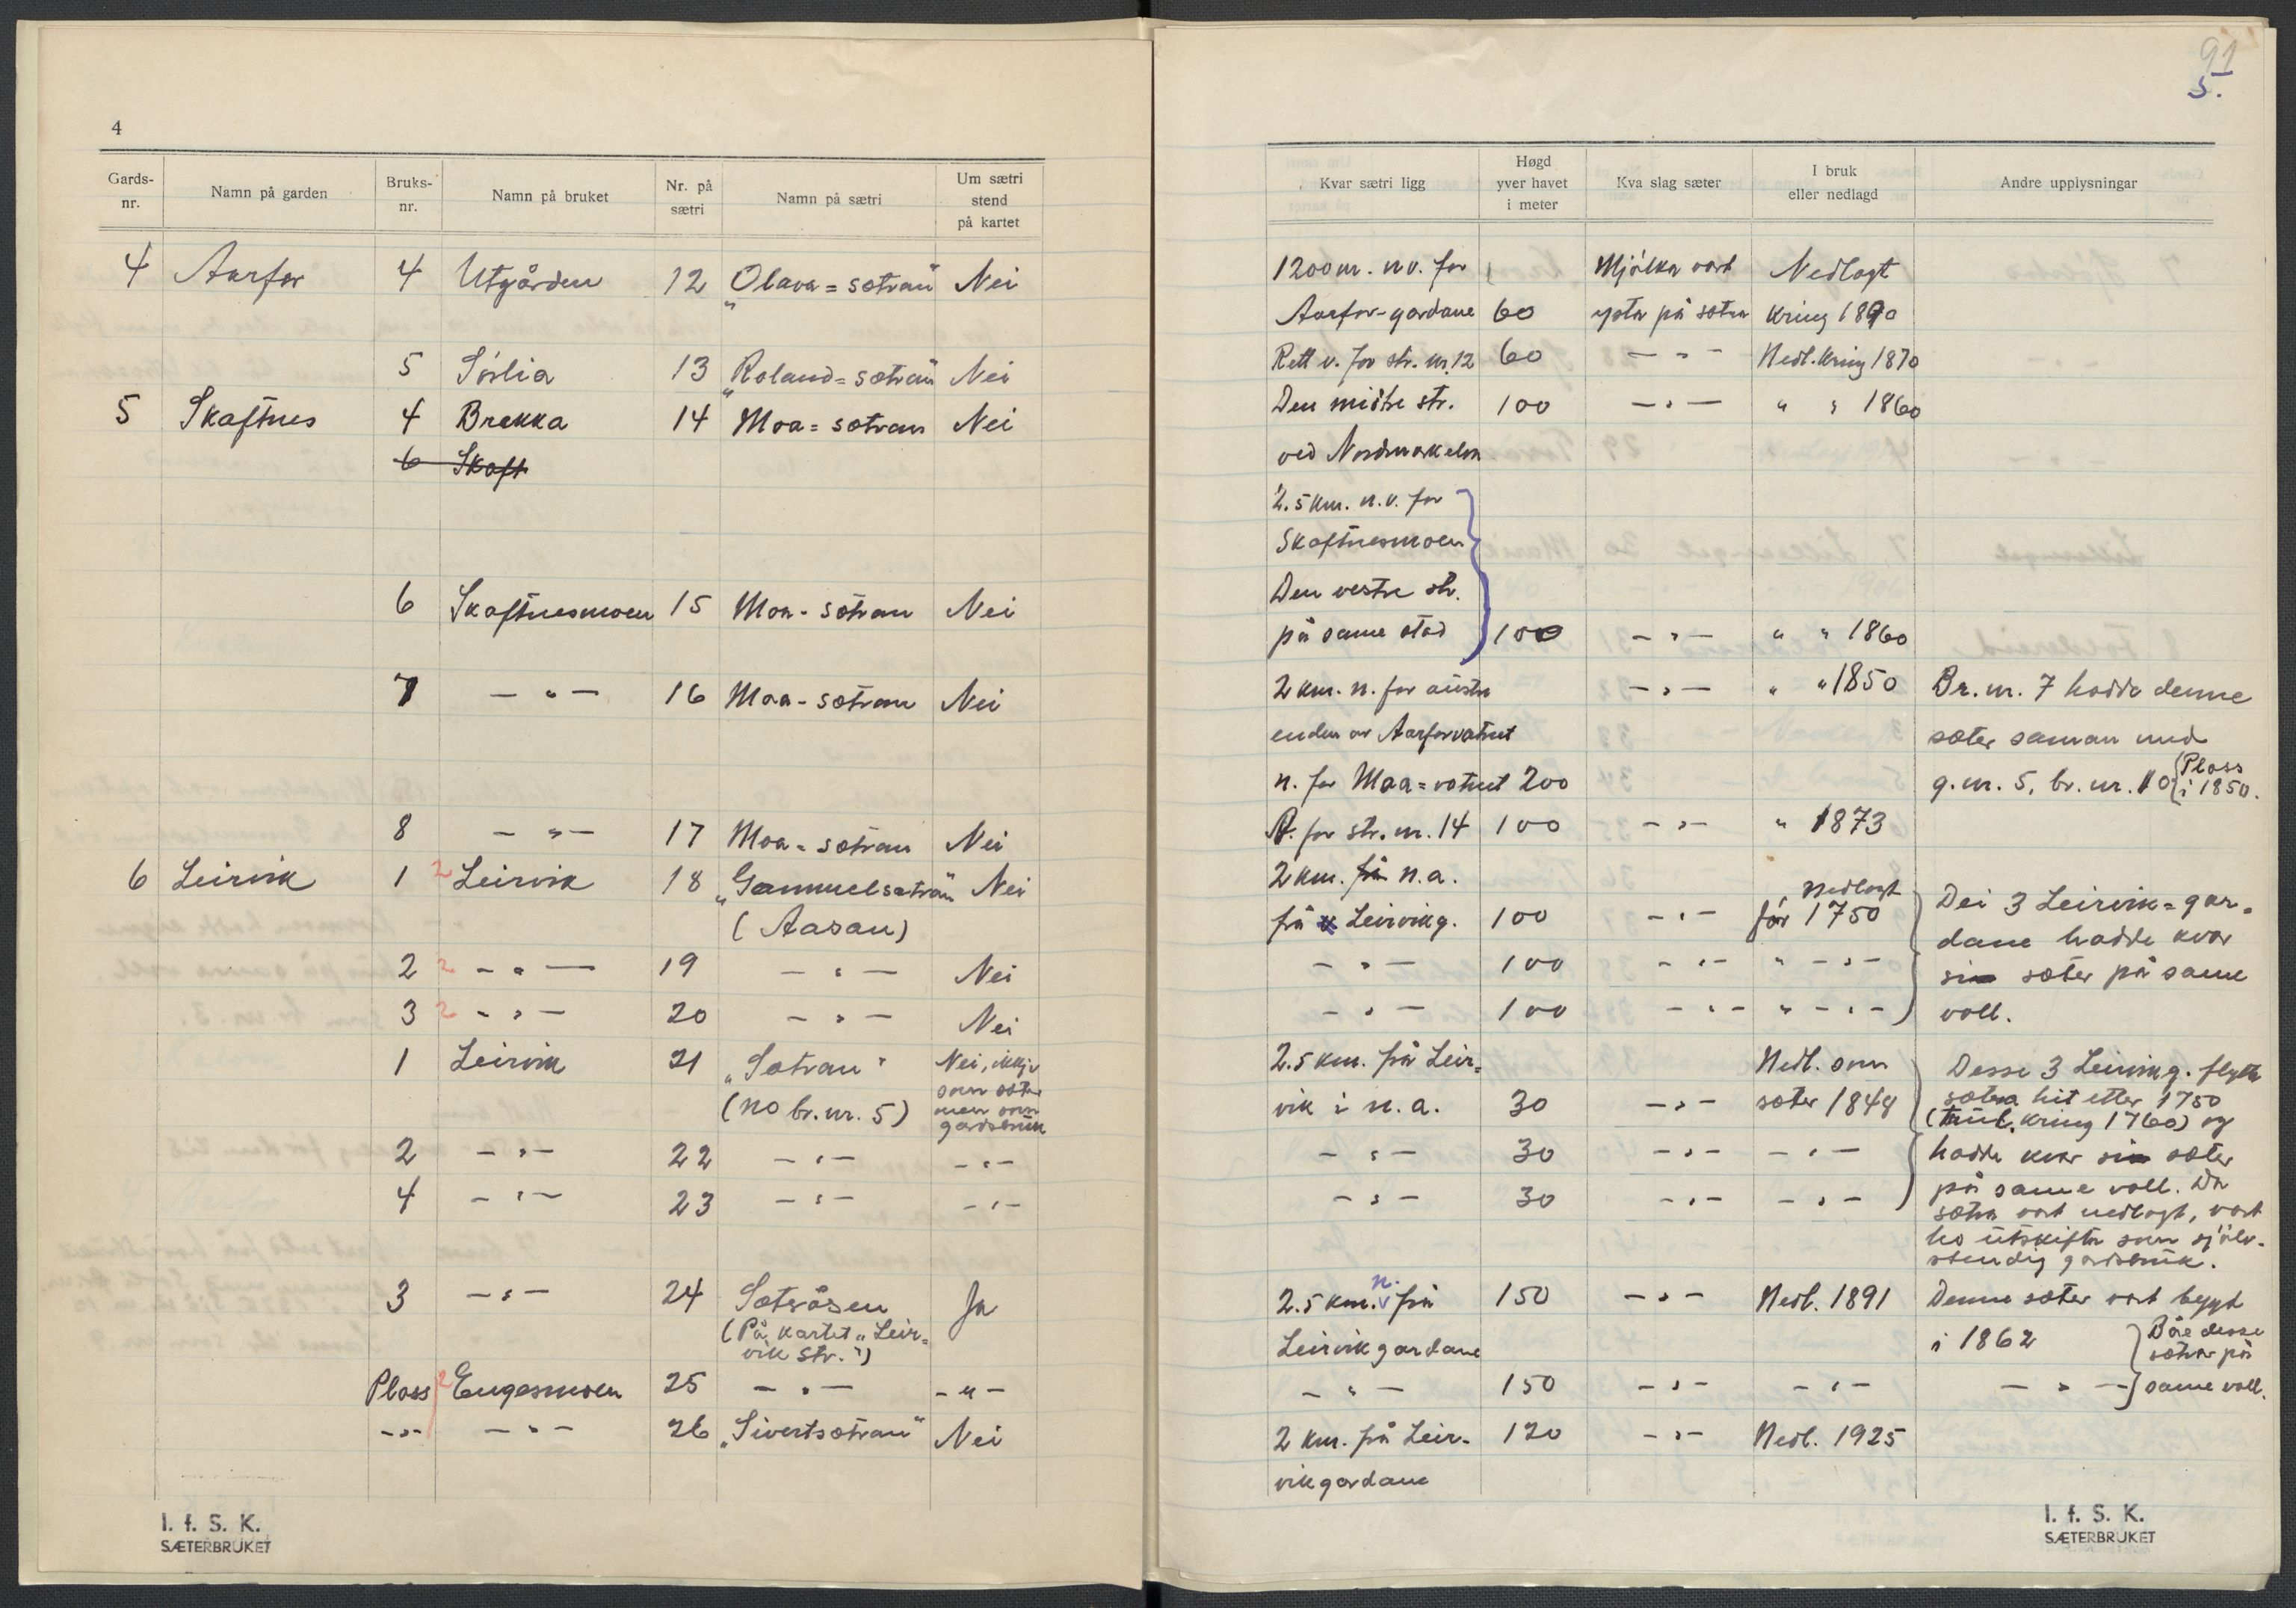 4
Gards-
nr.
Namn på garden
Bruks-
nr.
Namn på bruket
Nr. på
sætri
Namn på sætri
Um sætri
stend
på kartet
4 Aarfor 4 Utgården 12 „Olava=sætran" Nei
5 Sörlia 13 „Roland=sætran" Nei
5 Skaftnes 4 Brekka 14 Moa=sætran Nei
6 Skaft
6 Skaftnesmoen 15 Moa-sætran Nei
7 — " — 16 Moa-sætran Nei
8 — " — 17 Moa=sætran Nei
6 Leirvik 1 2 Leirvik 18 „Gammuelsætran" Nei
(Aasan)
2 2 — " — 19 — " — Nei
3 2 — " — 20 — " — Nei
1 Leirvik 21 „Sætran" Nei, ikkje
som sæter
(no br. nr. 5) men som
gardsbruk
2 — " — 22 — " — — " —
4 — " — 23 — " — — " —
3 — " — 24 Sætråsen Ja
(På kartet „Leir=
vik str.")
Plass 2 Engesmoen 25 — " — — " —
— " — — " — 26 „Sivertsætran" Nei
I. f. S. K.
SÆTERBRUKET
91
5.
Kvar sætri ligg
Høgd
yver havet
i meter
Kva slag sæter
I bruk
eller nedlagd
Andre upplysningar
1200 m. n.v. for Mjölka vart Nedlagt
Aarfor-gardane 60 ysta på sætra kring 1890
Rett v. for str. nr. 12 60 — " — Nedl. kring 1870
Den midtre str. 100 — " — " " 1860
ved Nordmarkelva
2.5 km. n.v. for
Skaftnesmoen
Den vestre str.
på same stad 100 — " — " " 1860
2 km. n. for austre — " — " " 1850 Br. nr. 7 hadde denne
enden av Aarforvatnet sæter saman med
n. for Moa=vatnet 200 g. nr. 5, br. nr. 10 (Plass
i 1850.
A. for str. nr. 14 100 — " — " 1873
2 km. frå n.a. Nedlagt
frå Leirvikg. 100 — " — för 1750 Dei 3 Leirvik=gar=
dane hadde kvar
— " — 100 — " — " — " — sin sæter på same
— " — 100 — " — " — " — voll.
2.5 km. frå Leir= Nedl. som Desse 3 Leirvikg. flytta
vik i n.a. 30 — " — sæter 1849 sætra hit etter 1750
(truleg kring 1760) og
— " — 30 — " — — " — hadde kvar sin sæter
— " — 30 — " — — " — på same voll. Då
sætra vart nedlagt, vart
ho utskifta som sjölv-
stendig gardsbruk.
2.5 km. n. v. frå 150 — " — Nedl. 1891 Denne sæter vart bygd
Leirvikgardane i 1862 Båe desse
sætrar på
— " — 150 — " — — " — — " — same voll.
2 km. frå Leir- 120 — " — Nedl. 1925
vikgardane
I. f. S. K.
SÆTERBRUKET